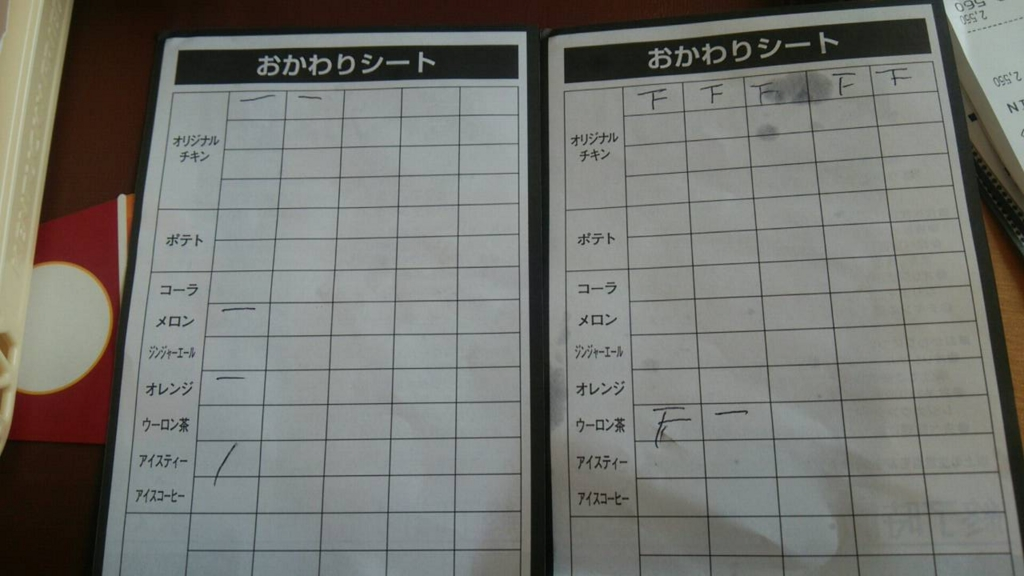 おかわりシート
オリジナル
チキン
ポテト
コーラ
メロン
ジンジャーエール
オレンジ
ウーロン茶
アイスティー
アイスコーヒー
おかわりシート
オリジナル
チキン
ポテト
コーラ
メロン
ジンジャーエール
オレンジ
ウーロン茶
アイスティー
アイスコーヒー
2,550